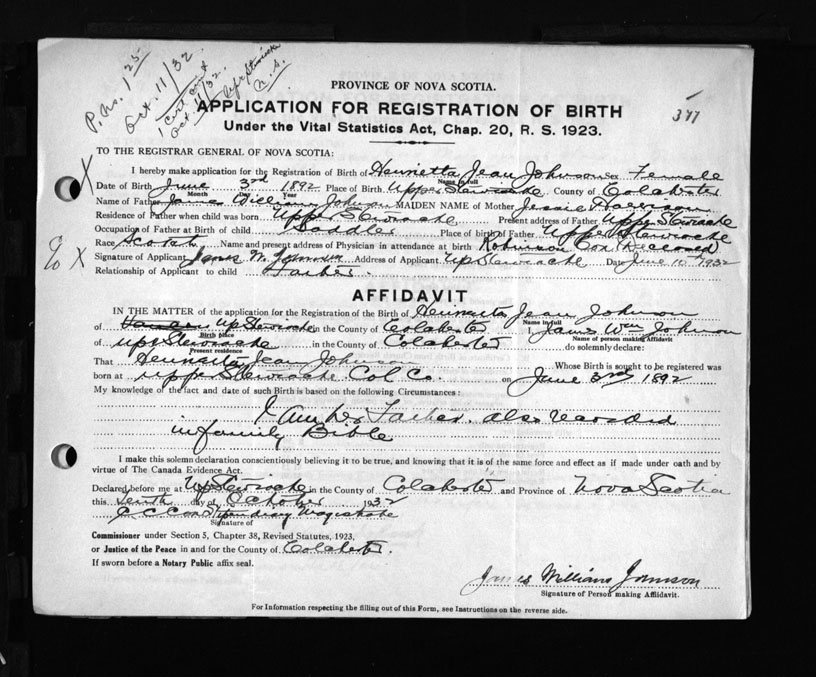 P. No. 1 25
Oct. 11/32
1 Cert sent
Oct. 11/32.
Upr Stewiacke
N. S.
PROVINCE OF NOVA SCOTIA.
APPLICATION FOR REGISTRATION OF BIRTH
347
Under the Vital Statistics Act, Chap. 20, R. S. 1923.
TO THE REGISTRAR GENERAL OF NOVA SCOTIA:
X
I hereby make application for the Registration of Birth of Henrietta Jean Johnson Sex Female
Name in full
Date of Birth June 3rd 1892 Place of Birth Upper Stewiacke County of Colchester
Month Day Year
Name of Father James William Johnson MAIDEN NAME of Mother Jessie
Residence of Father when child was born Upper Stewiacke Present address of Father Upper Stewiacke
Occupation of Father at Birth of child Saddler Place of birth of Father Upper Stewiacke
Race Scotch Name and present address of Physician in attendance at birth Robinson Cox (Deceased)
X
Signature of Applicant James W. Johnson Address of Applicant Up Stewiacke Date June 10 1932
Relationship of Applicant to child Father.
AFFIDAVIT
IN THE MATTER of the application for the Registration of the Birth of Henrietta Jean Johnson
Name in full
of Up Stewiacke in the County of Colchester I, James Wm Johnson
Birth place Name of person making Affidavit
of Upr Stewiacke in the County of Colchester do solemnly declare:
Present residence
That Henrietta Jean Johnson Whose Birth is sought to be registered was
born at Uppr Stewiacke Col Co. on June 3rd 1892
My knowledge of the fact and date of such Birth is based on the following Circumstances:
I Am her Father. also recorded
in family Bible
I make this solemn declaration conscientiously believing it to be true, and knowing that it is of the same force and effect as if made under oath and by
virtue of The Canada Evidence Act.
Declared before me at Up Stewiacke in the County of Colchester and Province of Nova Scotia
this Tenth day of October 1932
Cox Stipendiary Magistrate
Signature of
Commissioner under Section 5, Chapter 38, Revised Statutes, 1923,
or Justice of the Peace in and for the County of Colchester.
If sworn before a Notary Public affix seal.
James William Johnson
Signature of Person making Affidavit.
For Information respecting the filling out of this Form, see Instructions on the reverse side.